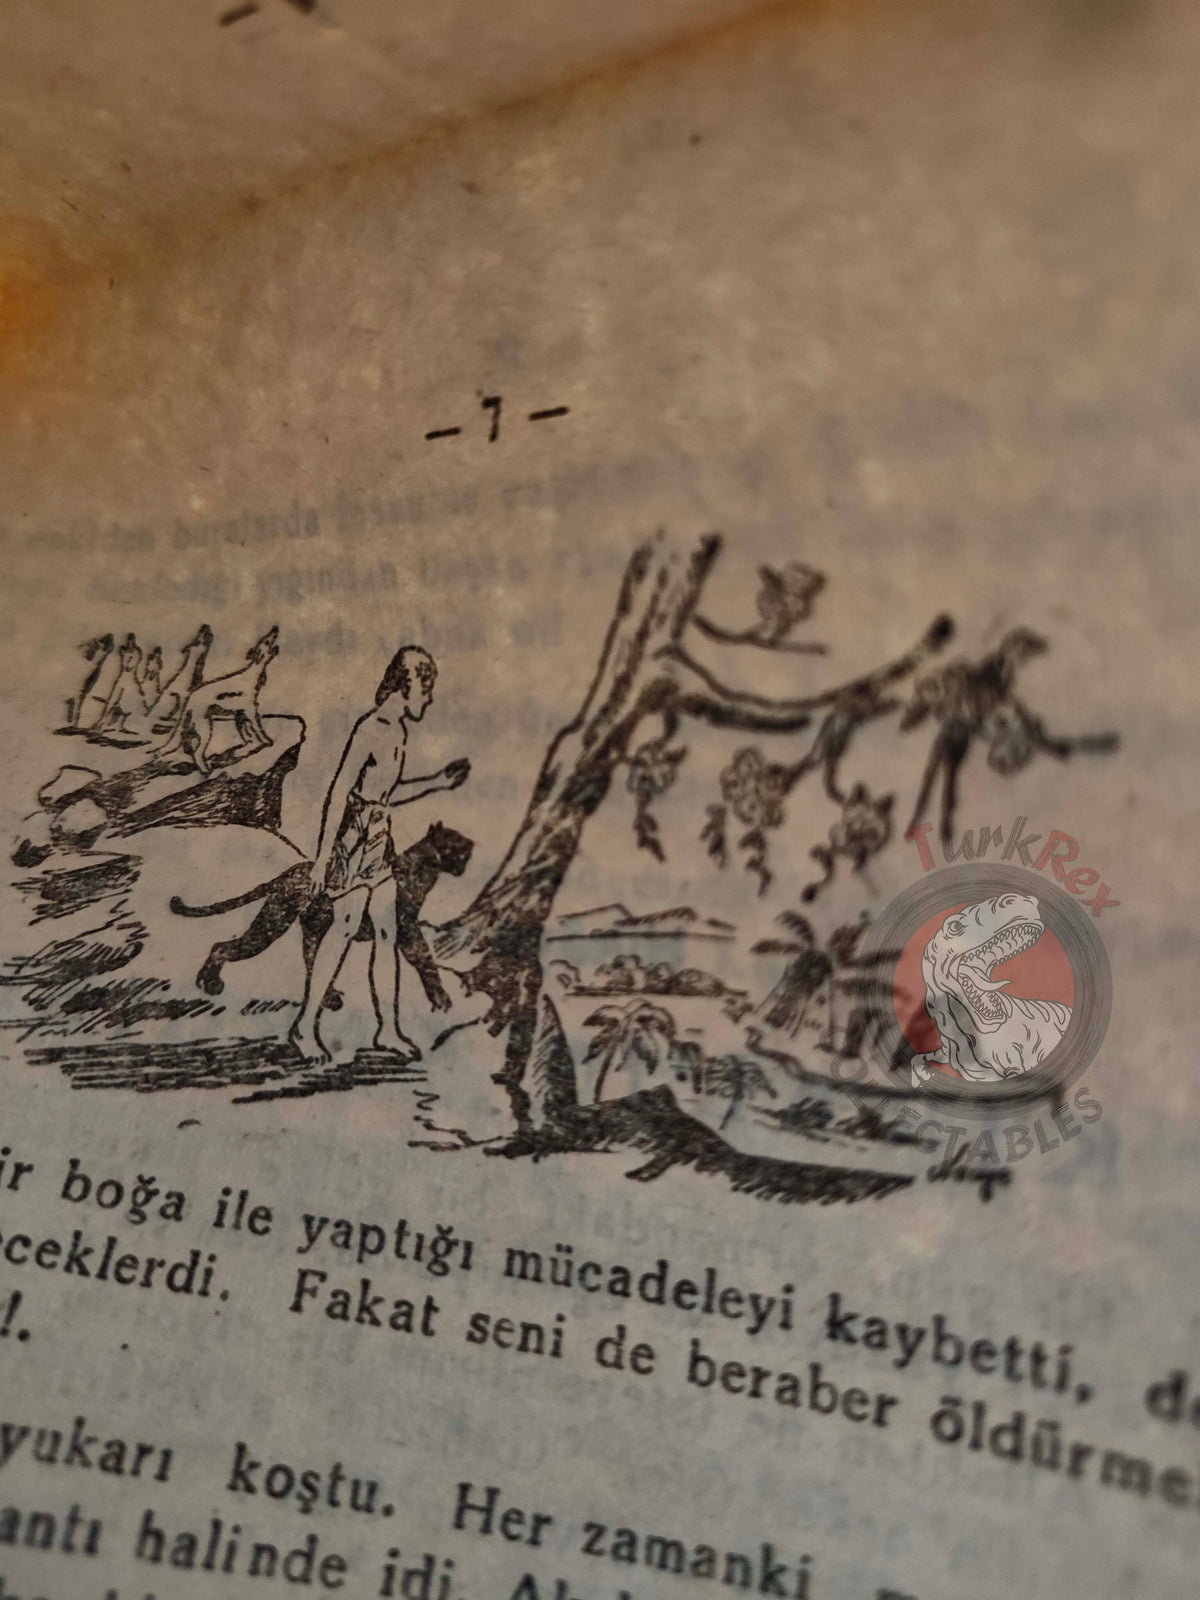 – 7 –
TurkRex
COLLECTABLES
ir boğa ile yaptığı mücadeleyi kaybetti, de
eceklerdi. Fakat seni de beraber öldürme
!.
yukarı koştu. Her zamanki
antı halinde idi.